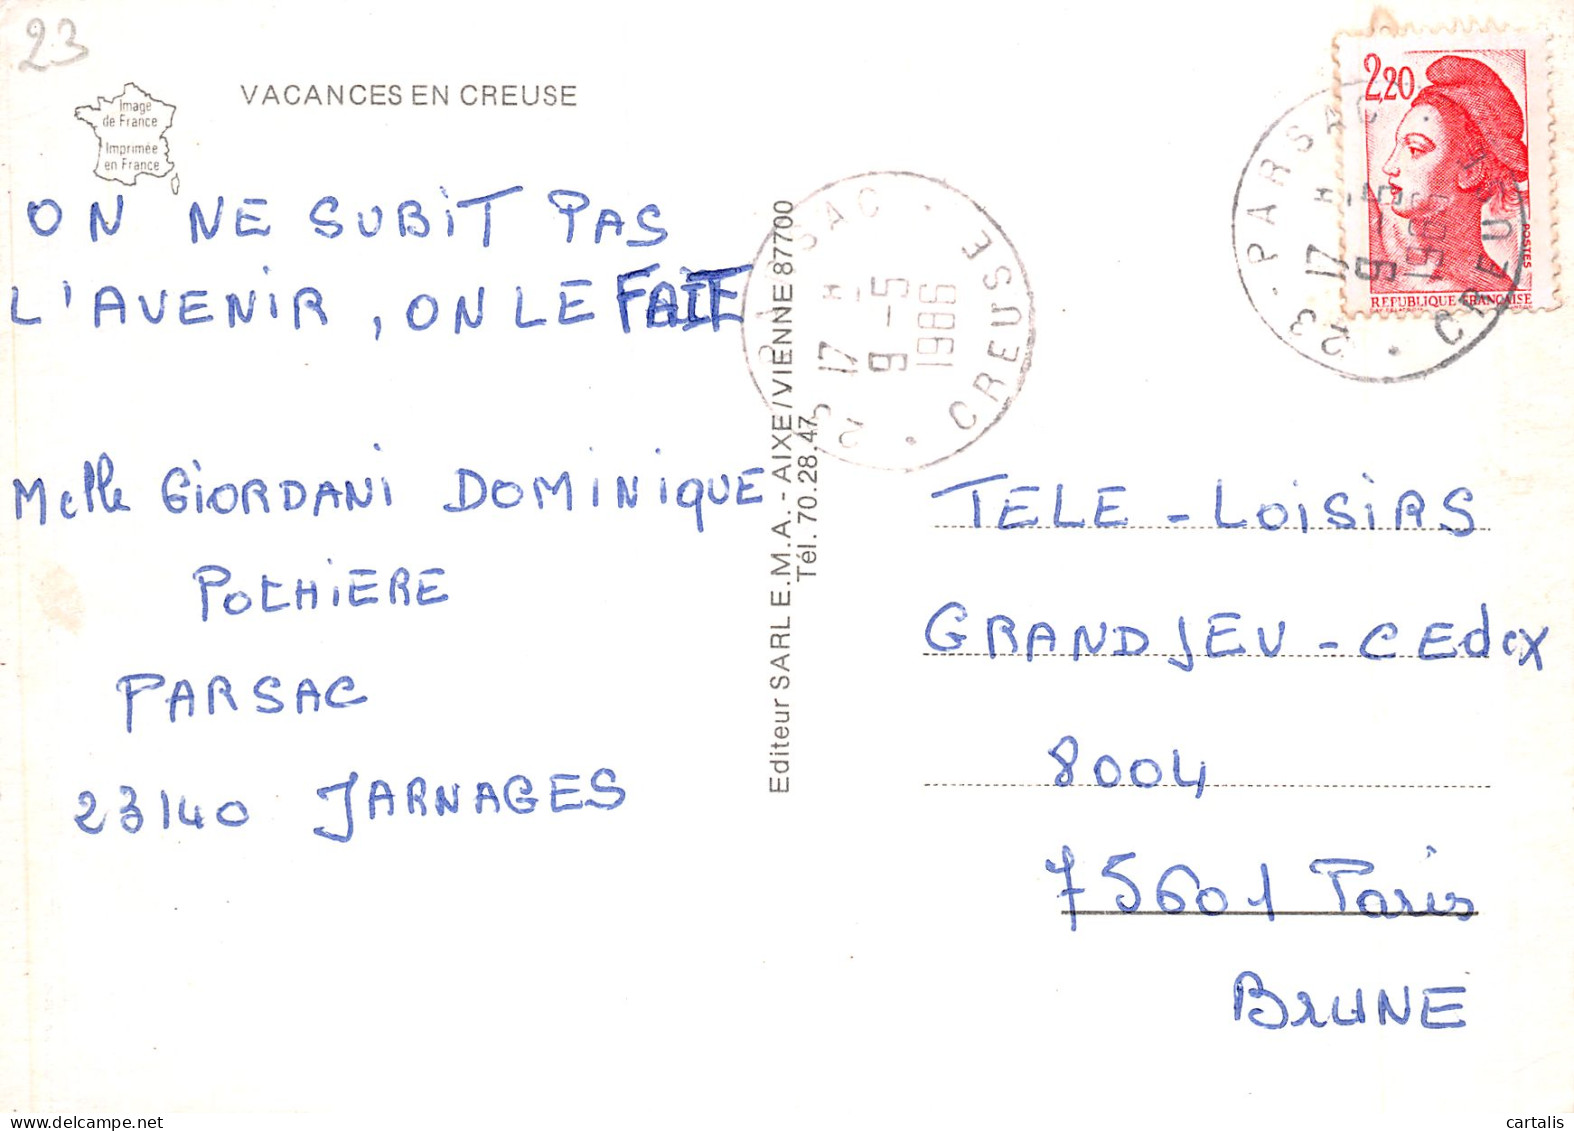 23
Image
de France
Imprimée
en France
VACANCES EN CREUSE
ON NE SUBIT PAS
L'AVENIR, ON LE FAIT
Melle GIORDANI DOMINIQUE
POTHIERE
PARSAC
23140 JARNAGES
Editeur SARL E.M.A. - AIXE/VIENNE 87700
Tél. 70.28.47
PARSAC
17 H
9-5
1986
23
CREUSE
2,20
POSTES
REPUBLIQUE FRANÇAISE
23 - PARSAC
17 H
9-5
1986
CREUSE
TELE-LOISIRS
GRANDJEU-CEdex
8004
75601 Paris
BRUNE
cartalis